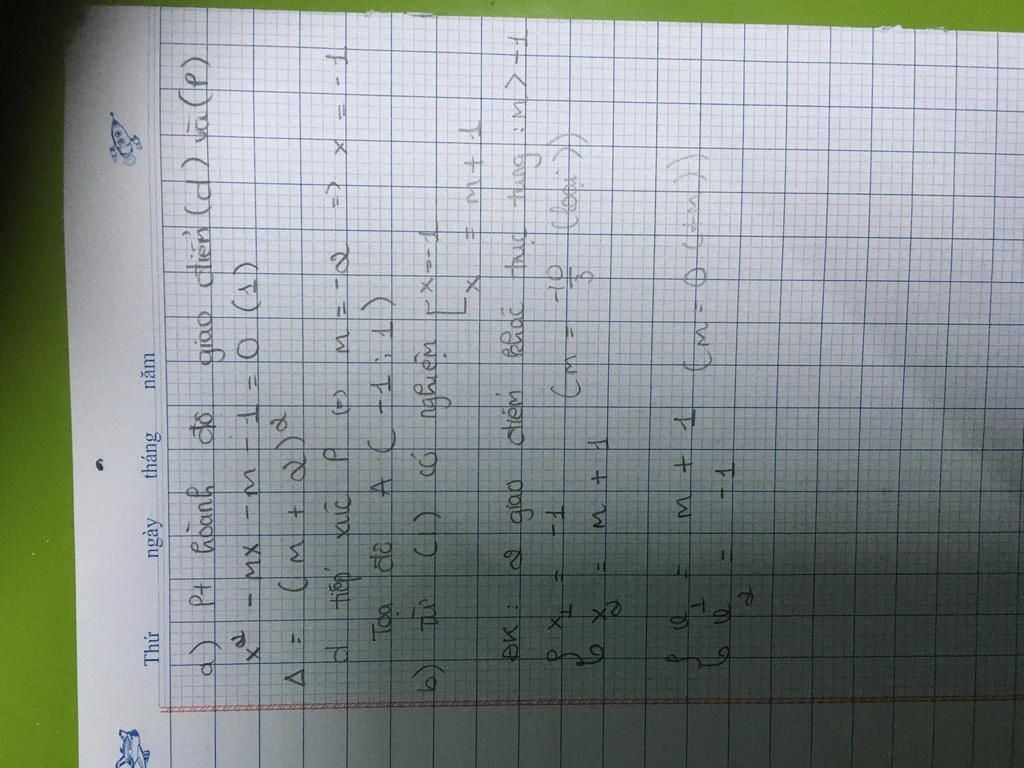 Thứ ngày tháng năm
a) Pt hoành độ giao điểm (d) và (P)
x² - mx - m - 1 = 0 (1)
Δ = (m + 2)²
d tiếp xúc P (=) m = -2 => x = -1
Tọa độ A (-1; 1)
b) từ (1) có nghiệm [ x = -1
x = m + 1
ĐK: 2 giao điểm khác trục tung: m > -1
{ x₁ = -1 (m = -10/3 (loại))
x₂ = m + 1
{ x₁ = m + 1 (m = 0 (t/m))
x₂ = -1